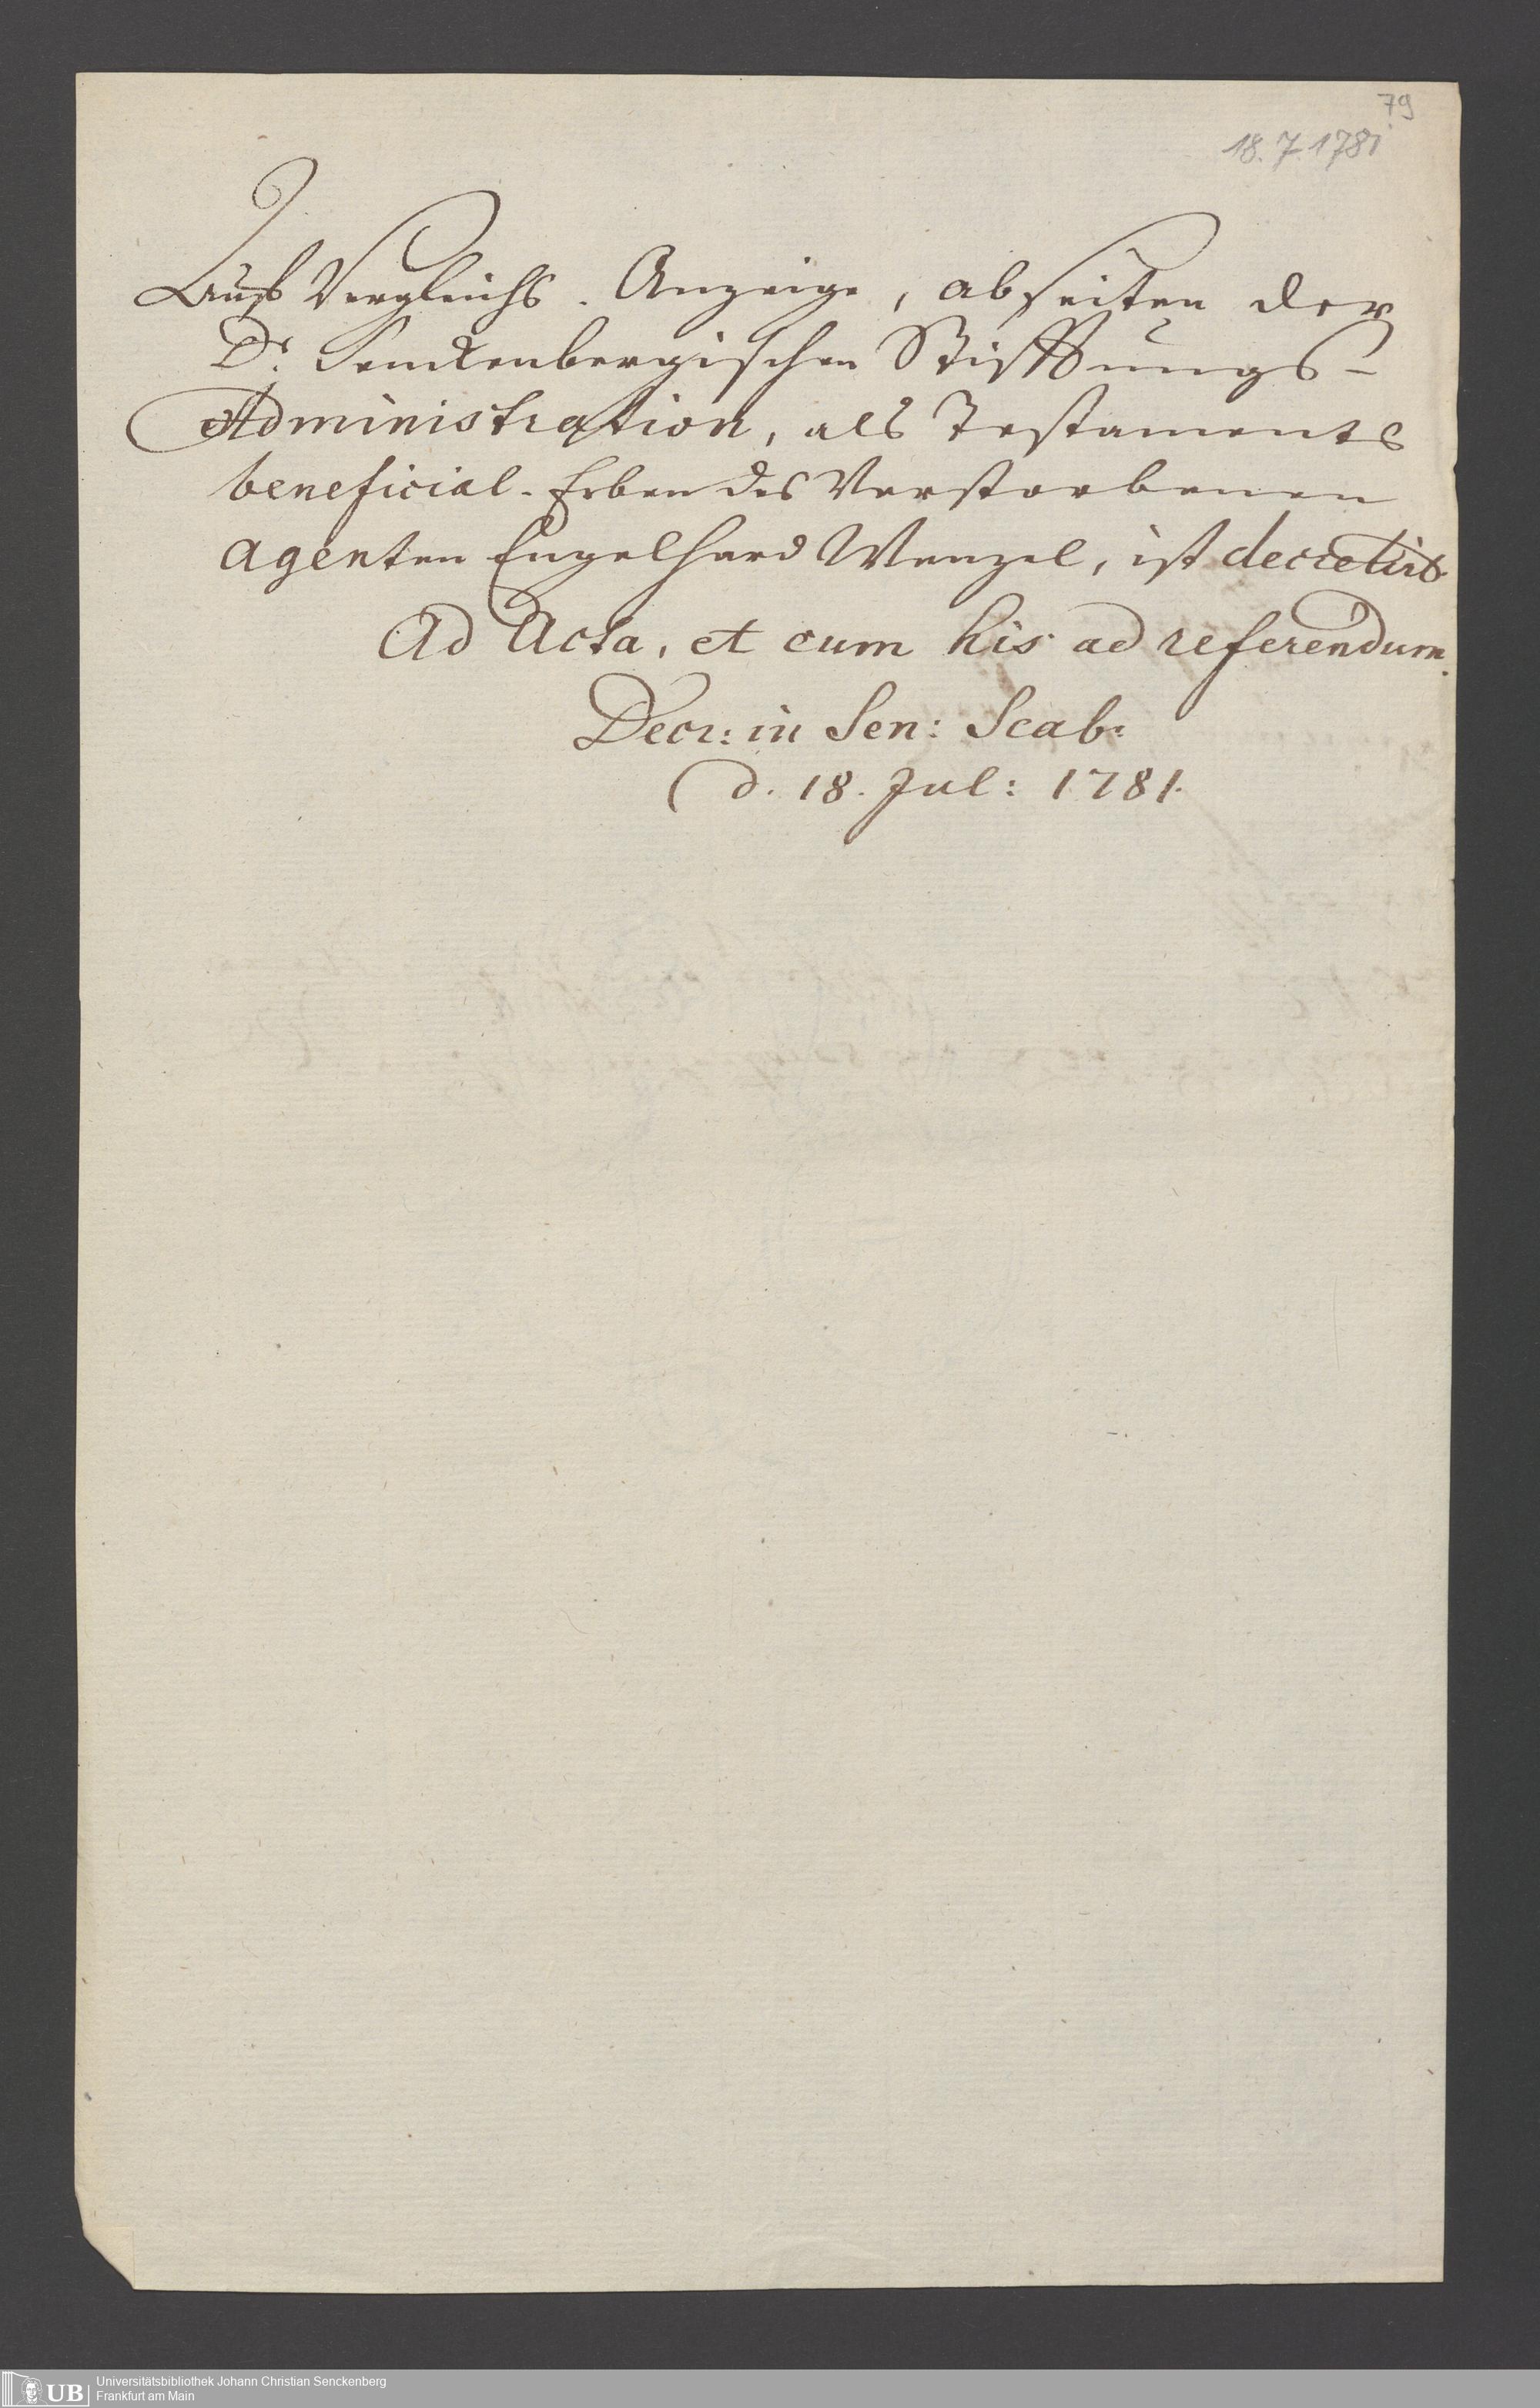 79
18.7.1781
Auf Vergleichs-Anzeige, abseiten der
Dr. Senckenbergischen Stifftungs-
Administration, als Testaments
beneficial-Erben des Verstorbenen
Agenten Engelhard Wenzel, ist decretirt
Ad Acta, et cum his ad referendum.
Decr: in Sen: Scab:
d. 18. Jul: 1781.
UB
Universitätsbibliothek Johann Christian Senckenberg
Frankfurt am Main